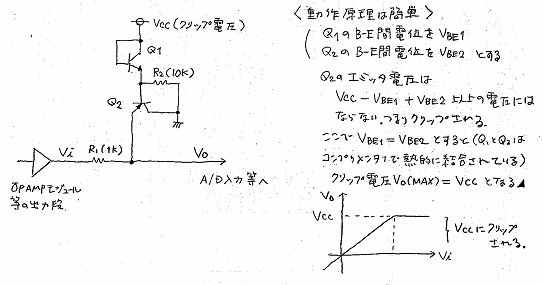 Vcc(クリップ電圧)
Q1
R2(10K)
Q2
Vi
R1(1K)
Vo
A/D入力等へ
OPAMPモジュール
等の出力段.
〈動作原理は簡単〉
Q1のB-E間電位をVBE1
Q2のB-E間電位をVBE2とする
Q2のエミッタ電圧は
Vcc-VBE1+VBE2以上の電圧には
ならない.つまりクリップされる.
ここでVBE1=VBE2とすると(Q1とQ2は
コンプリメンタリで熱的に結合されている)
クリップ電圧Vo(MAX)=Vccとなる▲
Vo
Vcc
Vi
Vccにクリップ
される.